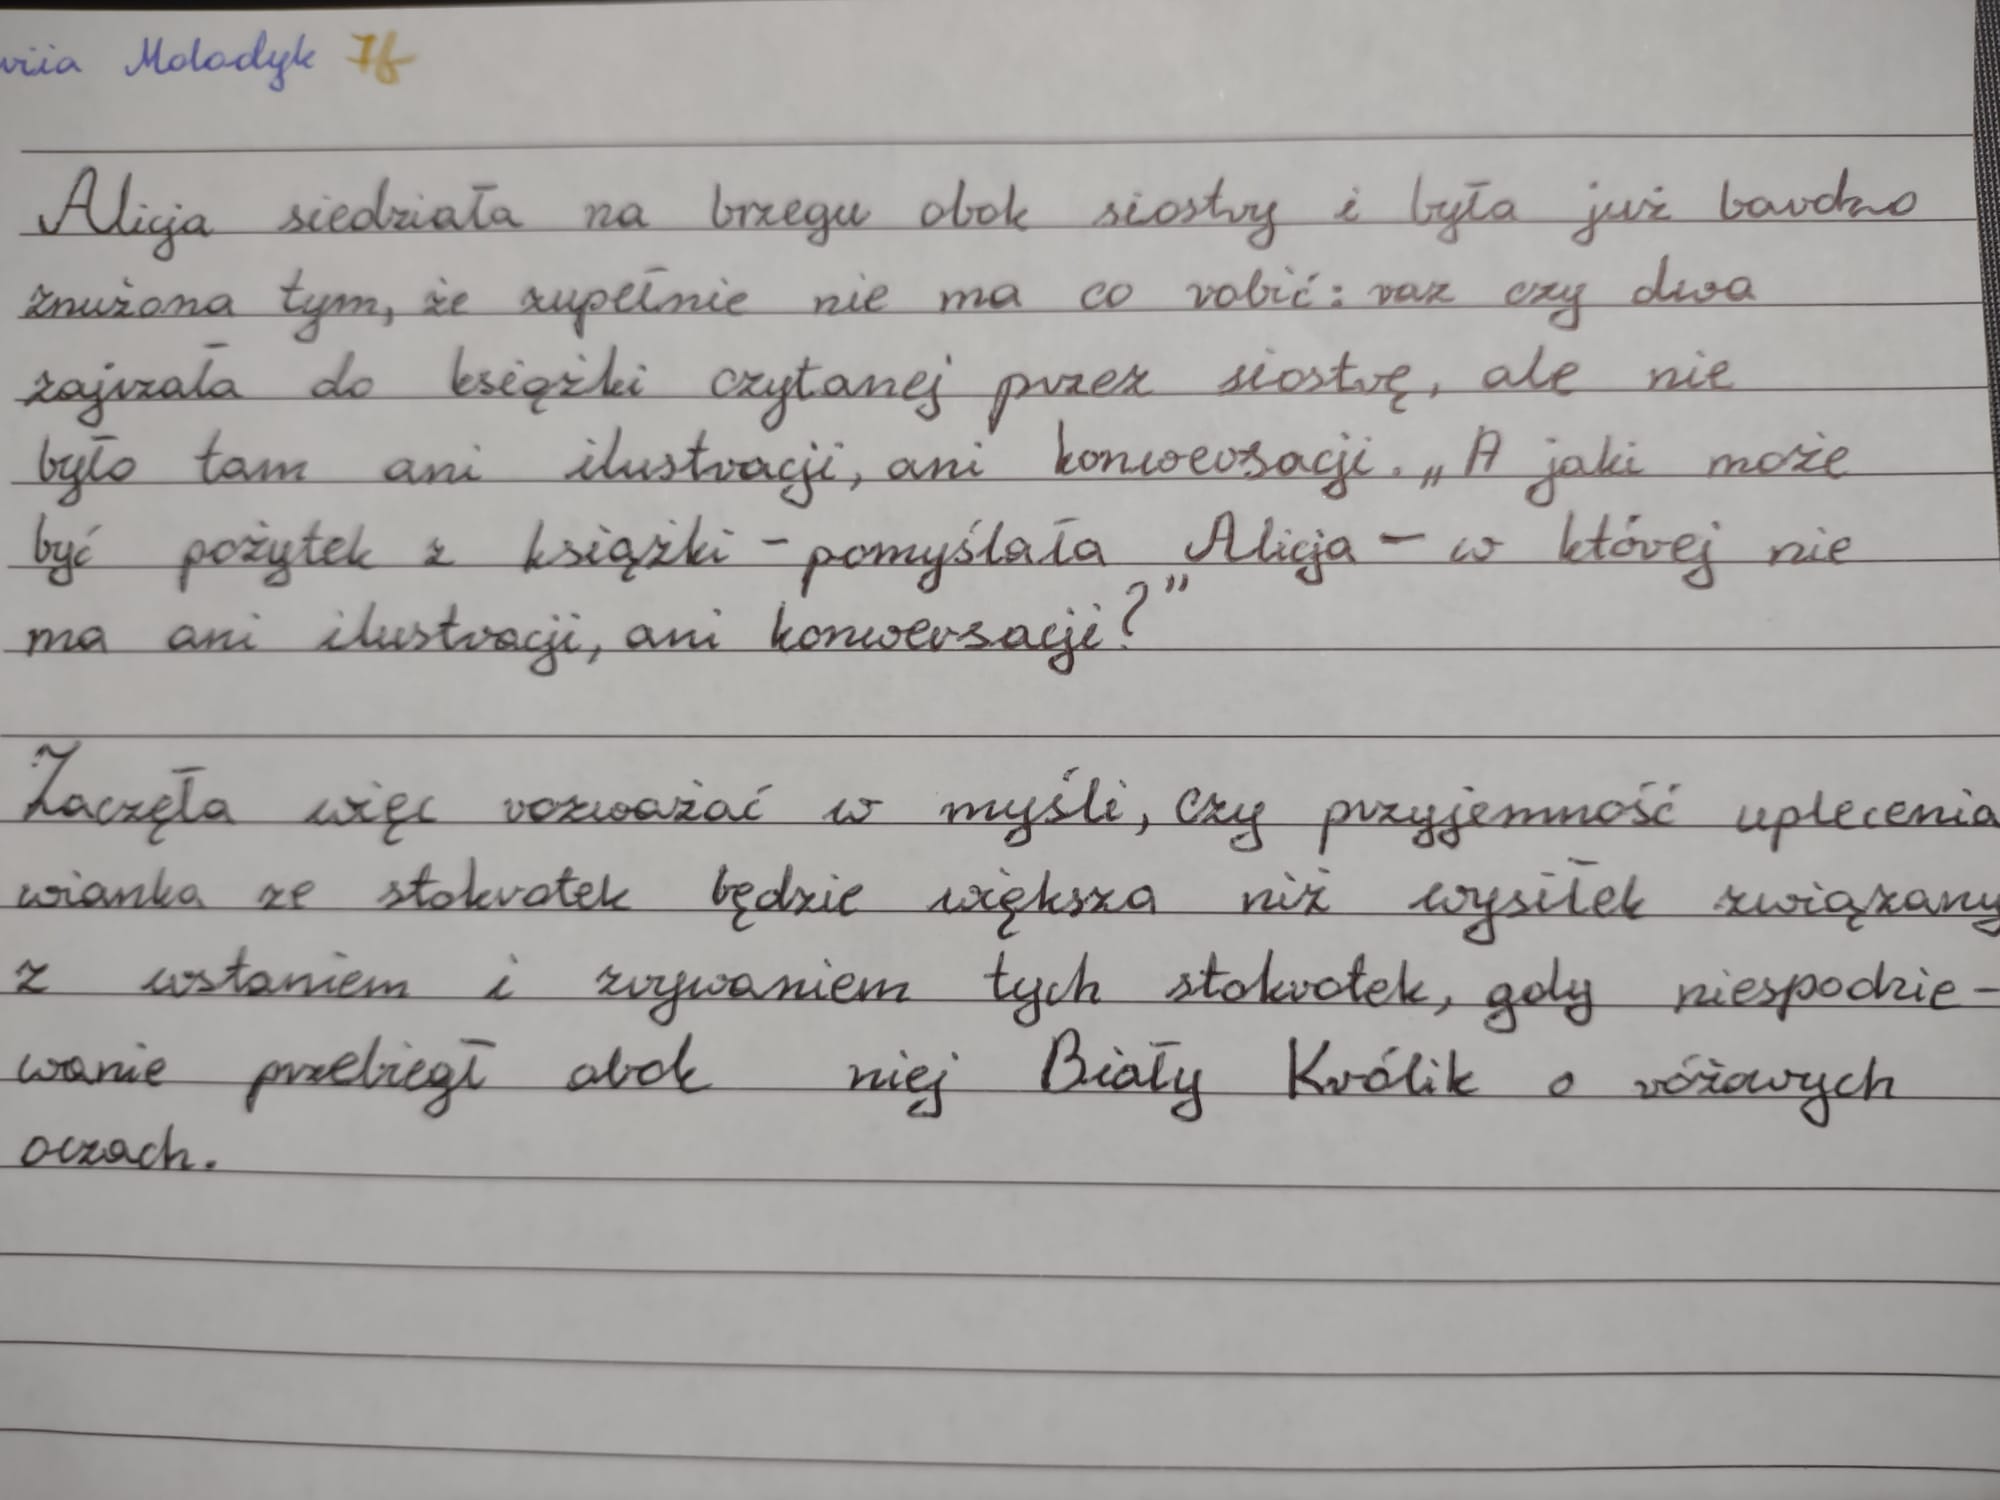 Molodyk 7f
Alicja siedziała na brzegu obok siostry i była już bardzo
znużona tym, że zupełnie nie ma co robić: raz czy dwa
zajrzała do książki czytanej przez siostrę, ale nie
było tam ani ilustracji, ani konwersacji. „A jaki może
być pożytek z książki - pomyślała Alicja - w której nie
ma ani ilustracji, ani konwersacji?”
Zaczęła więc rozważać w myśli, czy przyjemność uplecenia
wianka ze stokrotek będzie większa niż wysiłek związany
z wstaniem i zrywaniem tych stokrotek, gdy niespodzie-
wanie przebiegł obok niej Biały Królik o różowych
oczach.